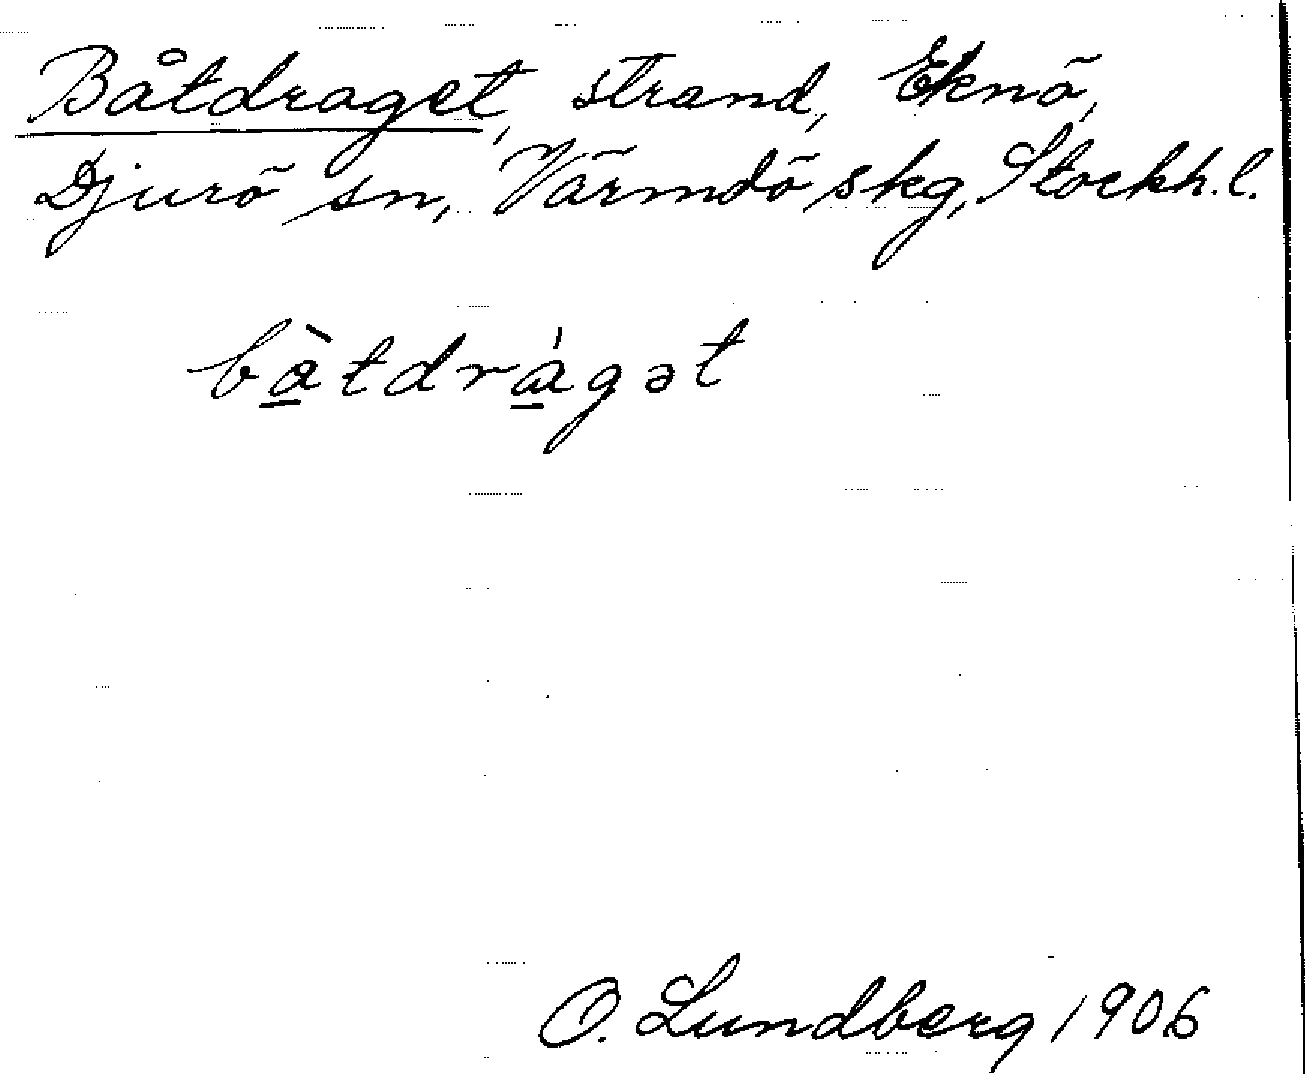 Båtdraget, strand, Eknö,
Djurö sn, Värmdö skg, Stockh. l.
bòtdrágət
O. Lundberg 1906